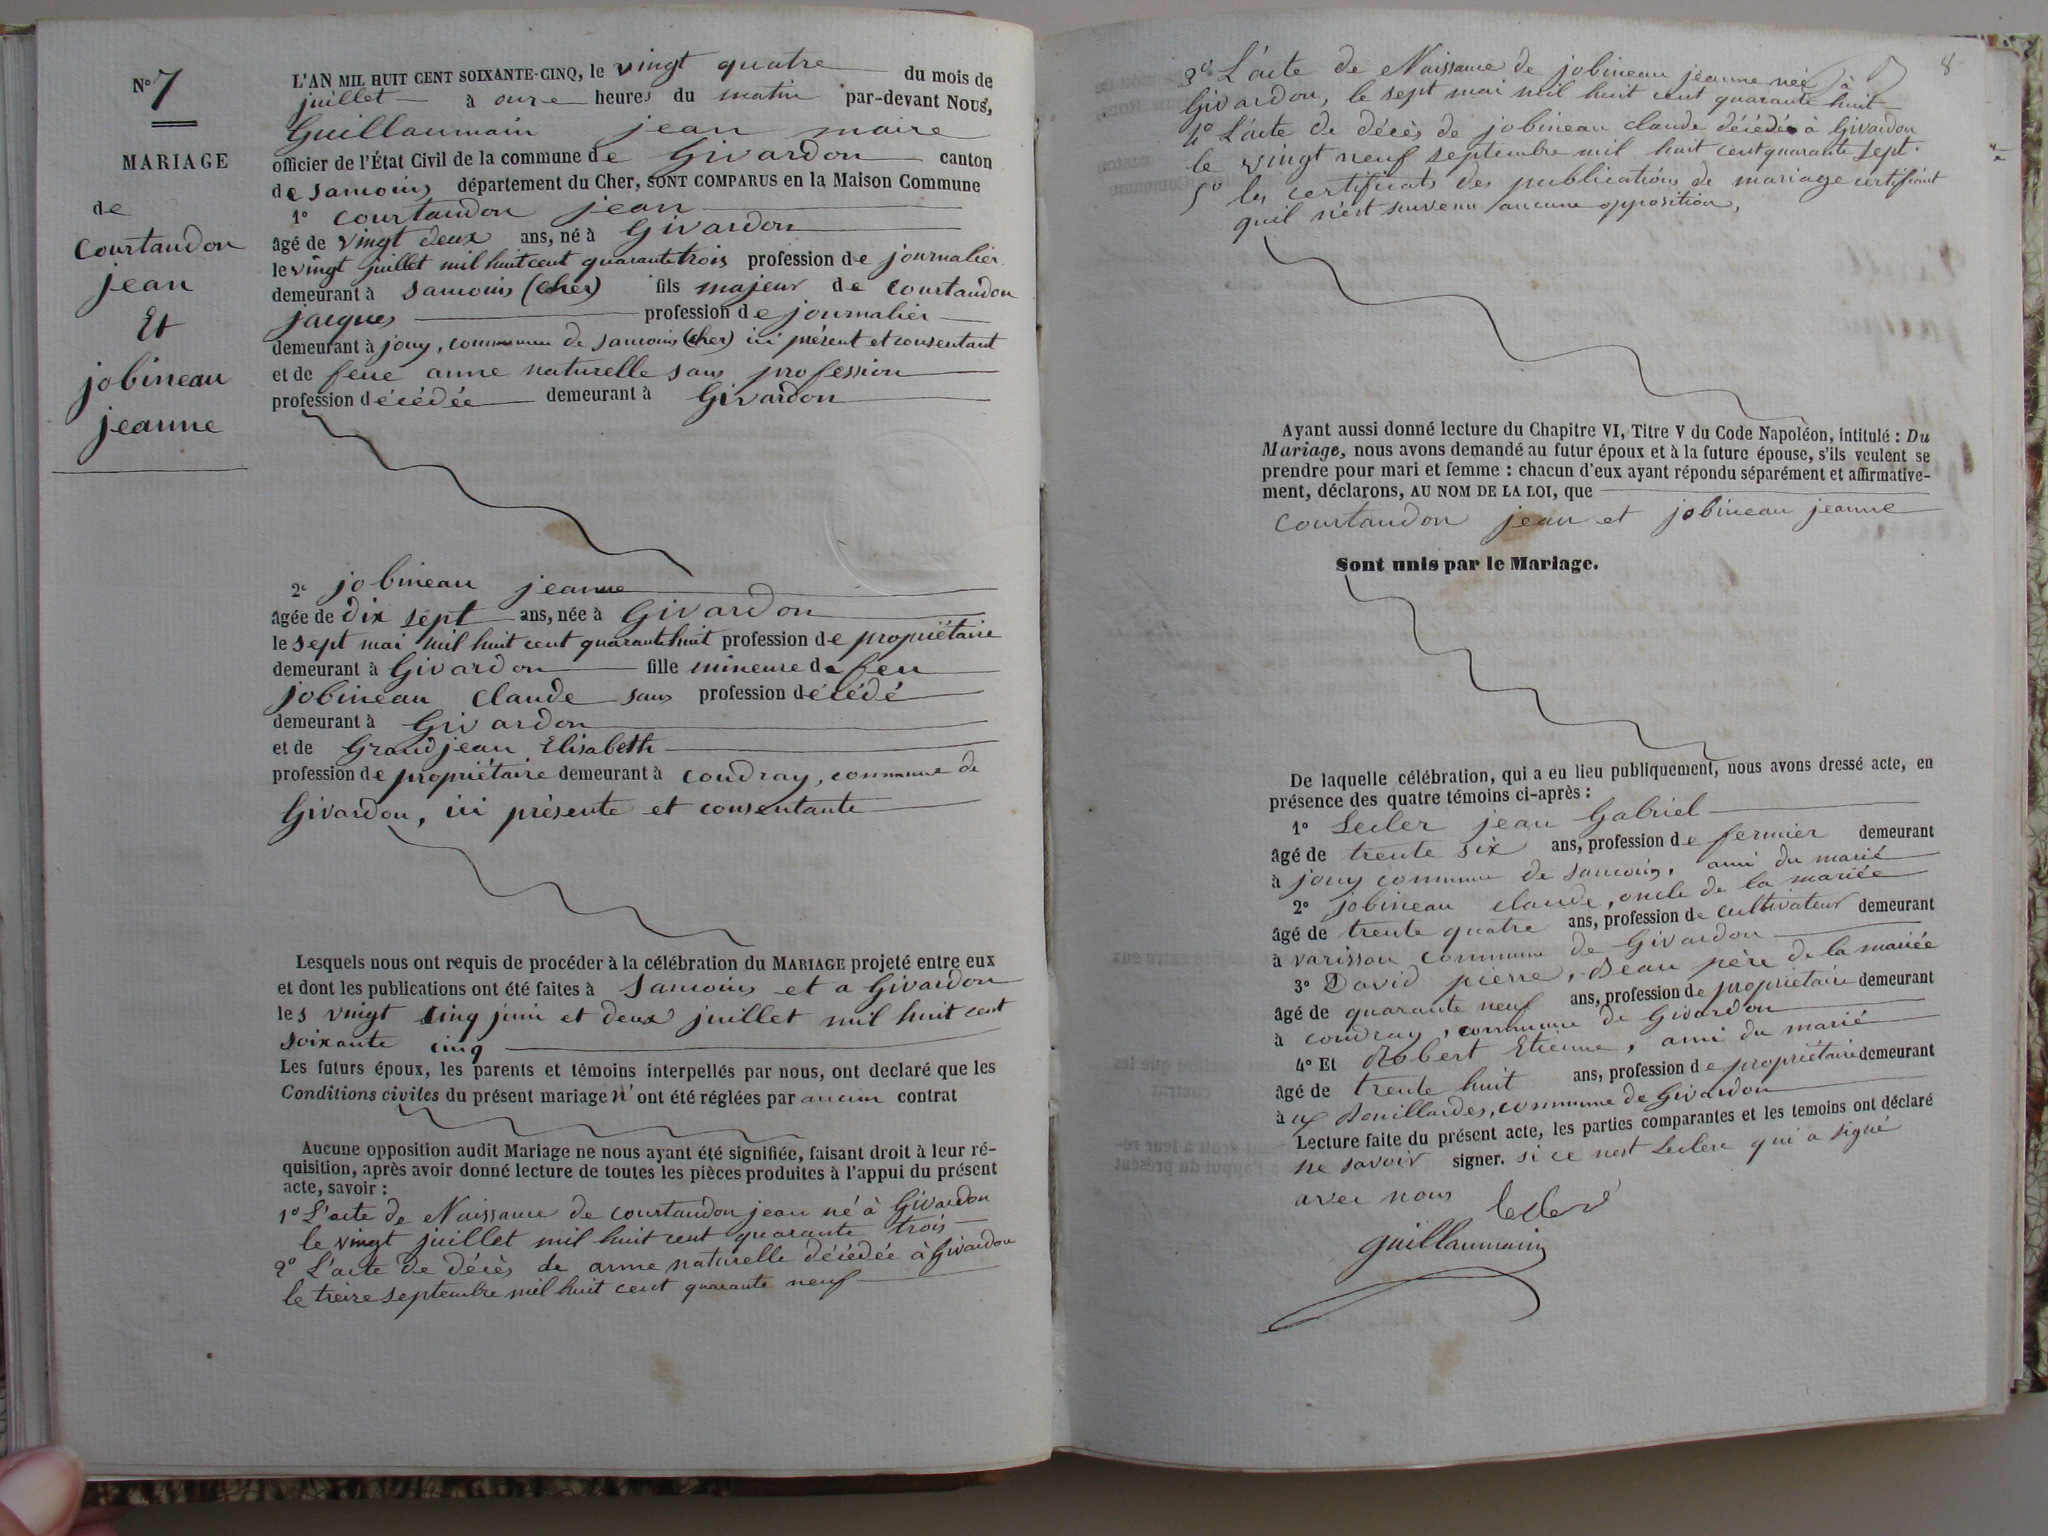 N° 7
MARIAGE
de
Courtaudon
jean
Et
jobineau
jeanne
L'AN MIL HUIT CENT SOIXANTE-CINQ, le vingt quatre du mois de
juillet à onze heures du matin par-devant NOUS,
Guillaumain jean maire
officier de l'État Civil de la commune de Givardon canton
de Sancoins département du Cher, SONT COMPARUS en la Maison Commune
1° Courtaudon jean
âgé de vingt deux ans, né à Givardon
le vingt juillet mil huit cent quarante trois profession de journalier
demeurant à Sancoins (Cher) fils majeur de Courtaudon
jacques profession de journalier
demeurant à jouy, commune de Sancoins (Cher) ici présent et consentant
et de feue anne naturelle sans profession
profession décédée demeurant à Givardon
2° jobineau jeanne
âgée de Dix sept ans, née à Givardon
le sept mai mil huit cent quarante huit profession de propriétaire
demeurant à Givardon fille mineure de feu
jobineau Claude sans profession décédé
demeurant à Givardon
et de Grandjean Elisabeth
profession de propriétaire demeurant à Coudray, commune de
Givardon, ici présente et consentante
Lesquels nous ont requis de procéder à la célébration du MARIAGE projeté entre eux
et dont les publications ont été faites à Sancoins et a Givardon
les vingt cinq juin et deux juillet mil huit cent
soixante cinq
Les futurs époux, les parents et témoins interpellés par nous, ont declaré que les
Conditions civiles du présent mariage n'ont été réglées par aucun contrat
Aucune opposition audit Mariage ne nous ayant été signifiée, faisant droit à leur ré-
quisition, après avoir donné lecture de toutes les pièces produites à l'appui du présent
acte, savoir :
1° L'acte de Naissance de Courtaudon jean né à Givardon
le vingt juillet mil huit cent quarante trois
2° L'acte de décès de anne naturelle décédée à Givardon
le treize septembre mil huit cent quarante neuf
8
3° L'acte de Naissance de jobineau jeanne née à
Givardon, le sept mai mil huit cent quarante huit
4° L'acte de décès de jobineau Claude décédé à Givardon
le vingt neuf septembre mil huit cent quarante sept.
5° les certificats des publications de mariage certifiant
quil n'est survenu aucune opposition,
Ayant aussi donné lecture du Chapitre VI, Titre V du Code Napoléon, intitulé : Du
Mariage, nous avons demandé au futur époux et à la future épouse, s'ils veulent se
prendre pour mari et femme : chacun d'eux ayant répondu séparément et affirmative-
ment, déclarons, AU NOM DE LA LOI, que
Courtaudon jean et jobineau jeanne
Sont unis par le Mariage.
De laquelle célébration, qui a eu lieu publiquement, nous avons dressé acte, en
présence des quatre témoins ci-après :
1° Lecler jean Gabriel
âgé de trente six ans, profession de fermier demeurant
à jouy commune de Sancoins, ami du marié
2° jobineau claude, oncle de la mariée
âgé de trente quatre ans, profession de cultivateur demeurant
à varissou commune de Givardon
3° David pierre, Beau père de la mariée
âgé de quarante neuf ans, profession de propriétaire demeurant
à coudray, commune de Givardon
4° Et Robert Etienne, ami du marié
âgé de trente huit ans, profession de propriétaire demeurant
à Souillardes, commune de Givardon
Lecture faite du présent acte, les parties comparantes et les temoins ont déclaré
ne savoir signer. si ce nest Leclerc qui a signé
avec nous
lecler
guillaumain